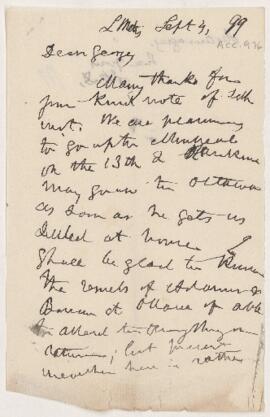 L Metis, Sept 4, 99
ACC. 976
Dear George
Many thanks for
your kind note of 1st
inst. We are planning
to go up to Montreal
on the 13th &
may go on to Ottawa
as soon as he gets us
settled at home. I
shall be glad to know
the results of Adams &
Bureau at Ottawa if able
to attend to anything on
return; but
weather here is rather